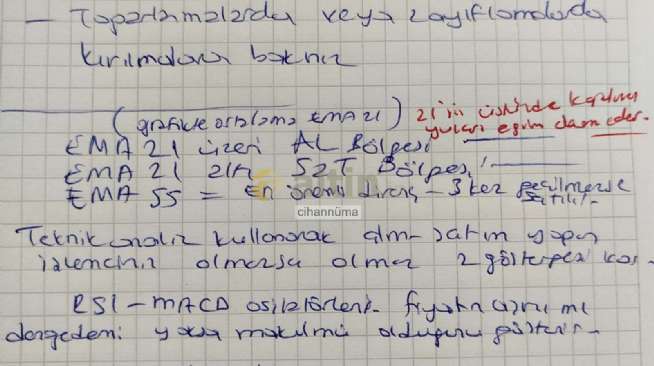 — Toparlamalarda veya zayıflamalarda
kırılmalara bakınız
(grafikte ortalama EMA 21) 21'in üstünde kapanış
yukarı eğim devam eder.
EMA 21 üzeri AL Bölgesi
EMA 21 altı SAT Bölgesi
EMA 55 = En önemli direnç – 3 kez geçilmezse
satılır.
altın
cihannüma
Teknik analiz kullanarak alım-satım yapan
olmazsa olmaz 2 göstergesi var.
RSI – MACD fiyatın mı
dengede mi yoksa makul mü olduğunu gösterir.